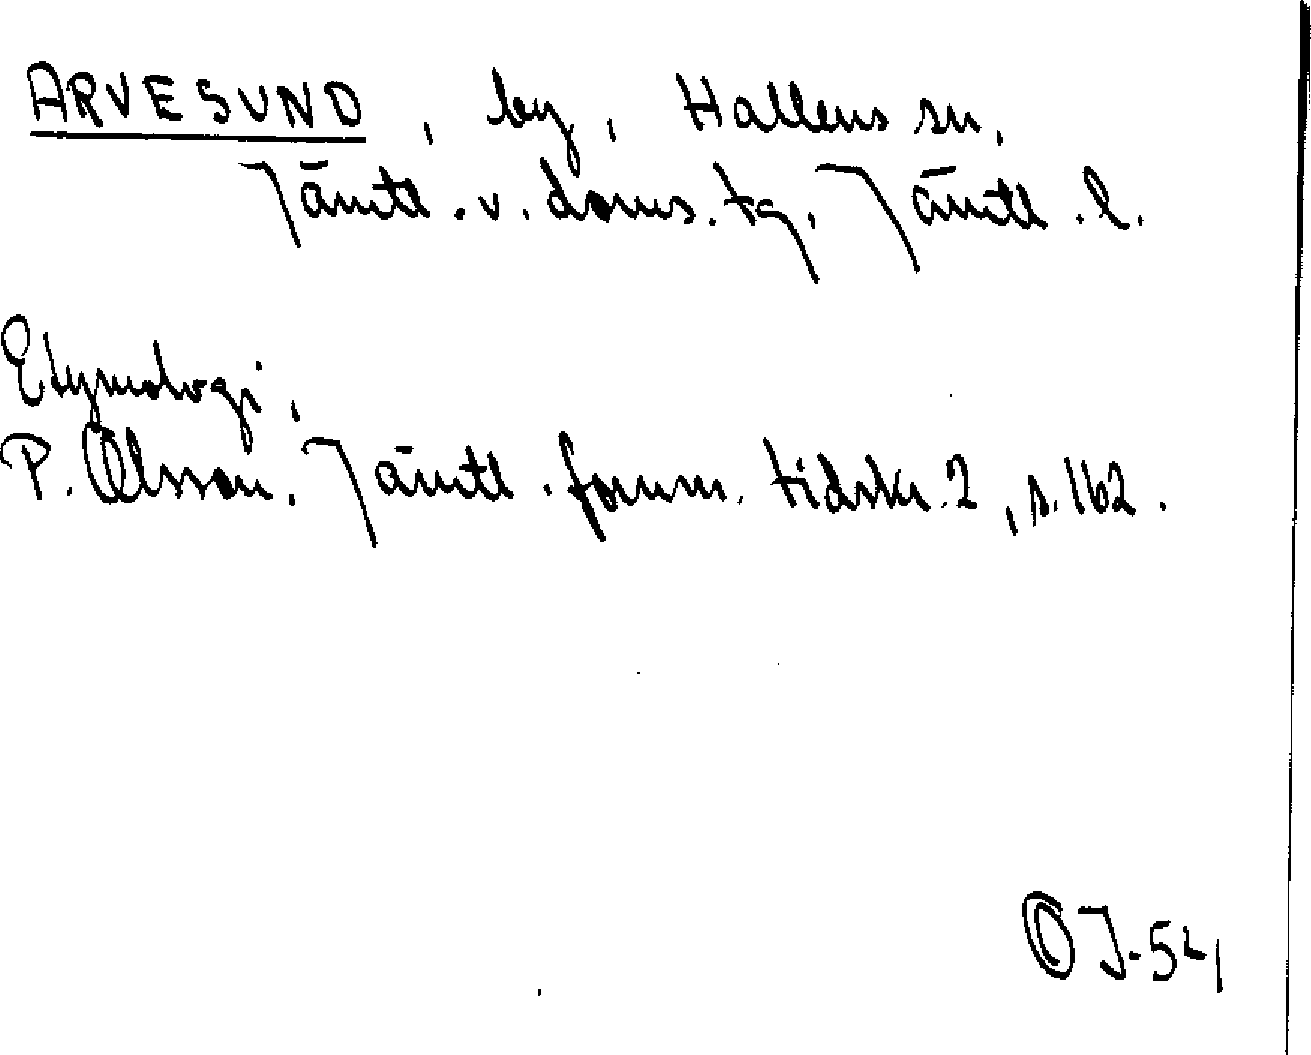 ARVESUND, by, Hallens sn,
Jämtl. v. doms. tg, Jämtl. l.
Etymologi,
P. Olsson, Jämtl. fornm. tidskr. 2, s. 162.
OJ-54